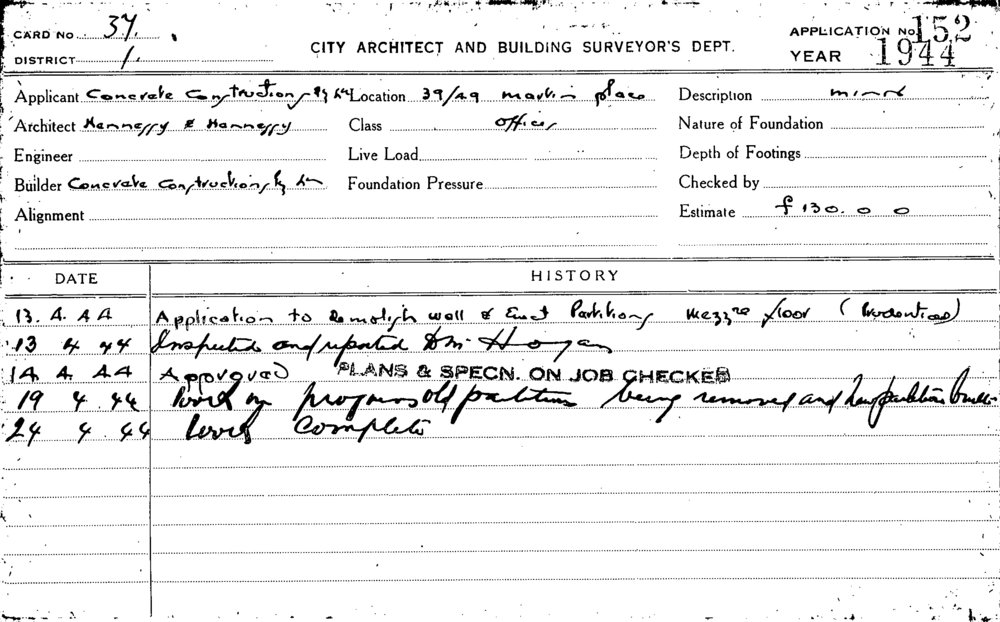 CARD No 37.
DISTRICT 1.
CITY ARCHITECT AND BUILDING SURVEYOR'S DEPT.
APPLICATION No 152
YEAR 1944
Applicant Concrete Constructions Pty Ltd Location 39/49 martin place Description minor
Architect Hennessy & Hennessy Class offices Nature of Foundation
Engineer Live Load Depth of Footings
Builder Concrete Constructions Pty Ltd Foundation Pressure Checked by
Alignment Estimate £130. 0 0
DATE HISTORY
13. 4. 44 Application to Demolish wall & Erect Partitions mezzne floor (Prudential)
13 4 44 Inspected and reported Hogan
14. 4. 44 Approved PLANS & SPECN. ON JOB CHECKED
19 4 44 Work in progress old partitions being removed and new partitions
24 4 44 Work Complete